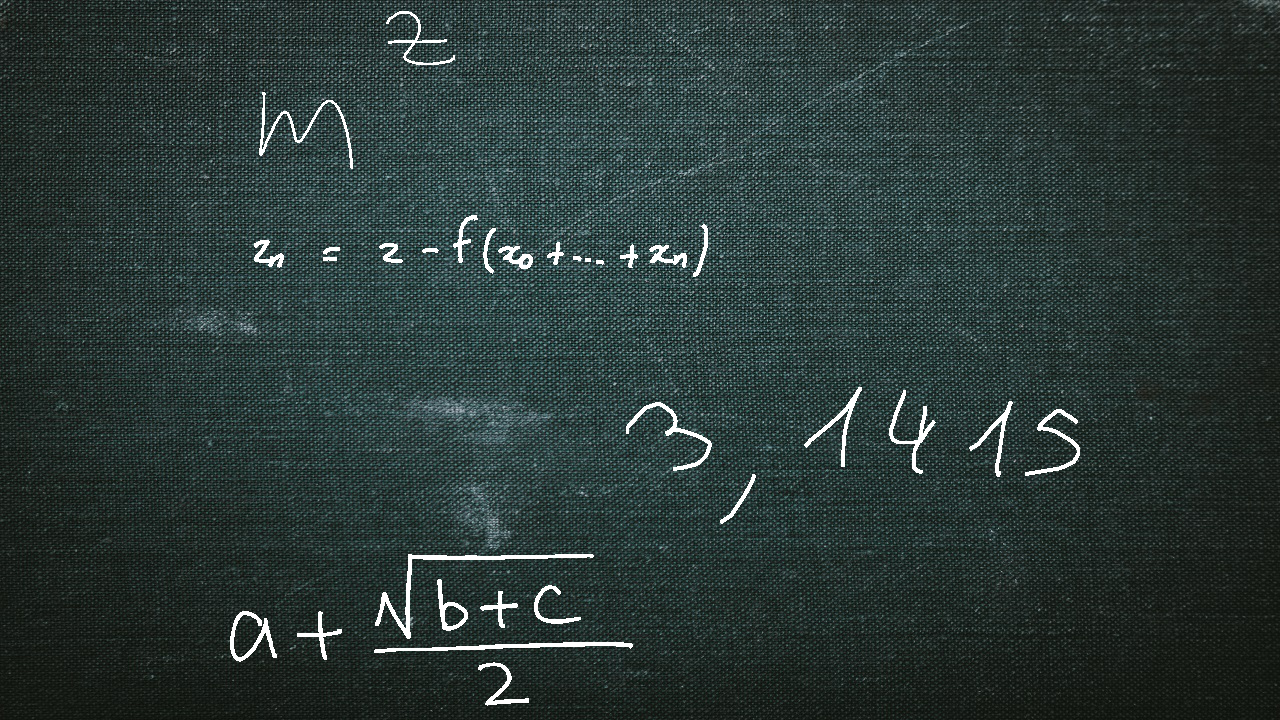 m^z
z_n = z - f(x_0 + ... + x_n)
3,1415
a + \frac{\sqrt{b+c}}{2}